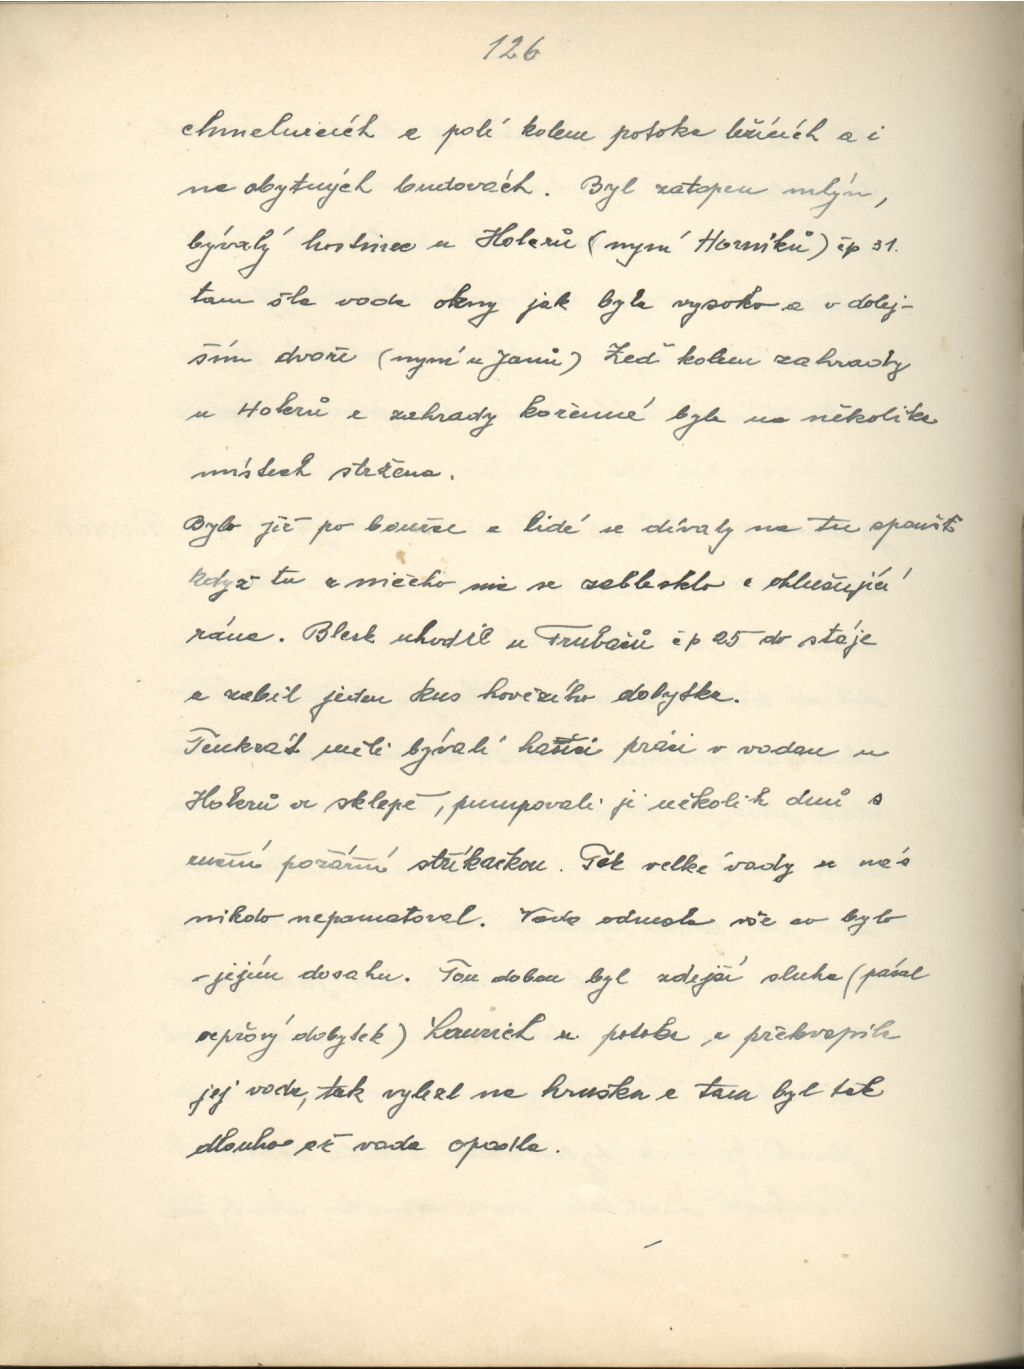 126
chmelnicích a polí kolem potoka ležících a i
na obytných budovách. Byl zatopen mlýn,
bývalý hostinec u Holerů (nyní Horníků) čp 31.
tam šla voda okny jak byla vysoko a v dolej-
ším dvoře (nyní u Janů) Zeď kolem zahrady
u Holerů a zahrady kořenné byla na několika
místech stržena.
Bylo již po bouřce a lidé se dívaly na tu spoušť
když tu z ničeho nic se zablesklo a ohlušující
rána. Blesk uhodil u Trubačů čp 25 do stáje
a zabil jeden kus hovězího dobytka.
Tenkrát měli bývalí hasiči práci s vodou u
Holerů ve sklepě, pumpovali ji několik dnů s
ruční požární stříkačkou. Tak velké vody u nás
nikdo nepamatoval. Voda odnesla vše co bylo
v jejím dosahu. Tou dobou byl zdejší sluha (pásal
vepřový dobytek) u potoka a překvapila
jej voda, tak vylezl na hrušku a tam byl tak
dlouho až voda opadla.